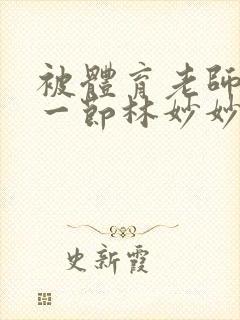 被體育老師
一節林妙妙
史新霞